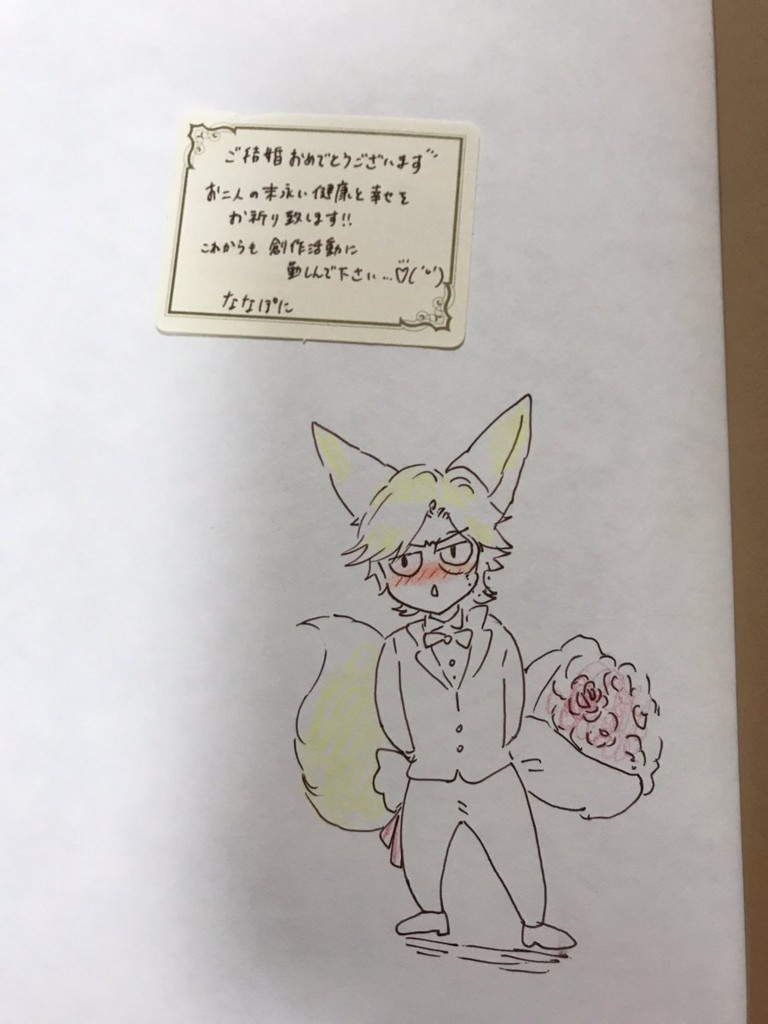 ご結婚おめでとうございます
お二人の末永い健康と幸せを
お祈り致します!!
これからも 創作活動に
勤しんで下さい…♡(´ω`)
ななぱに